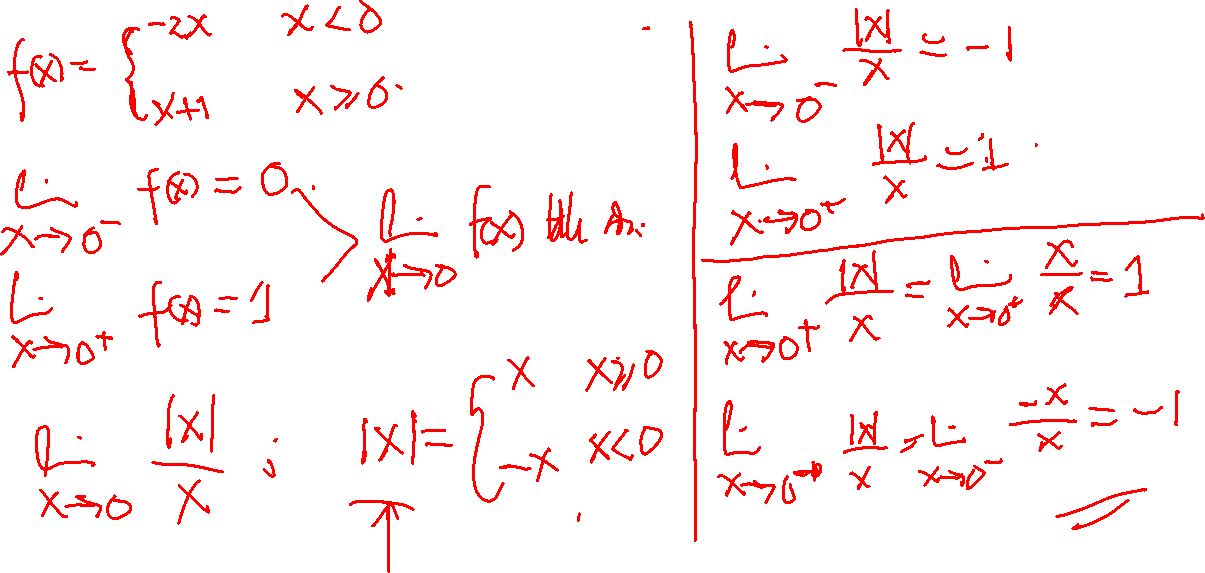 f(x) = { -2x x < 0
x+1 x ⩾ 0
lim x→0⁻ f(x) = 0
lim x→0 f(x)
lim x→0⁺ f(x) = 1
lim x→0 |x|/x ; |x| = { x x ⩾ 0
-x x < 0
lim x→0⁻ |x|/x = -1
lim x→0⁺ |x|/x = 1
lim x→0⁺ |x|/x = lim x→0⁺ x/x = 1
lim x→0⁻ |x|/x = lim x→0⁻ -x/x = -1